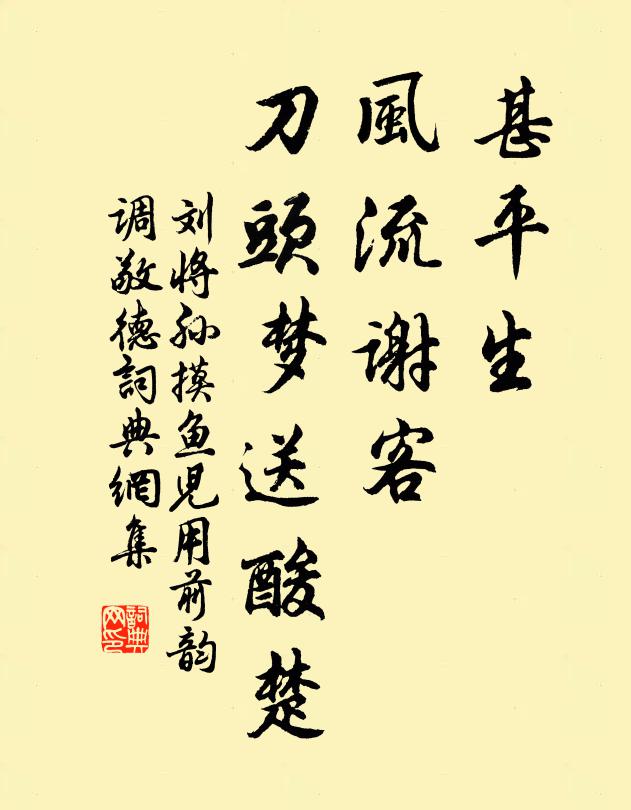 甚平生
風流谢客
刀頭梦送酸楚
刘将孙摸鱼児用前韵
调敬德詞典網集
詞典网印